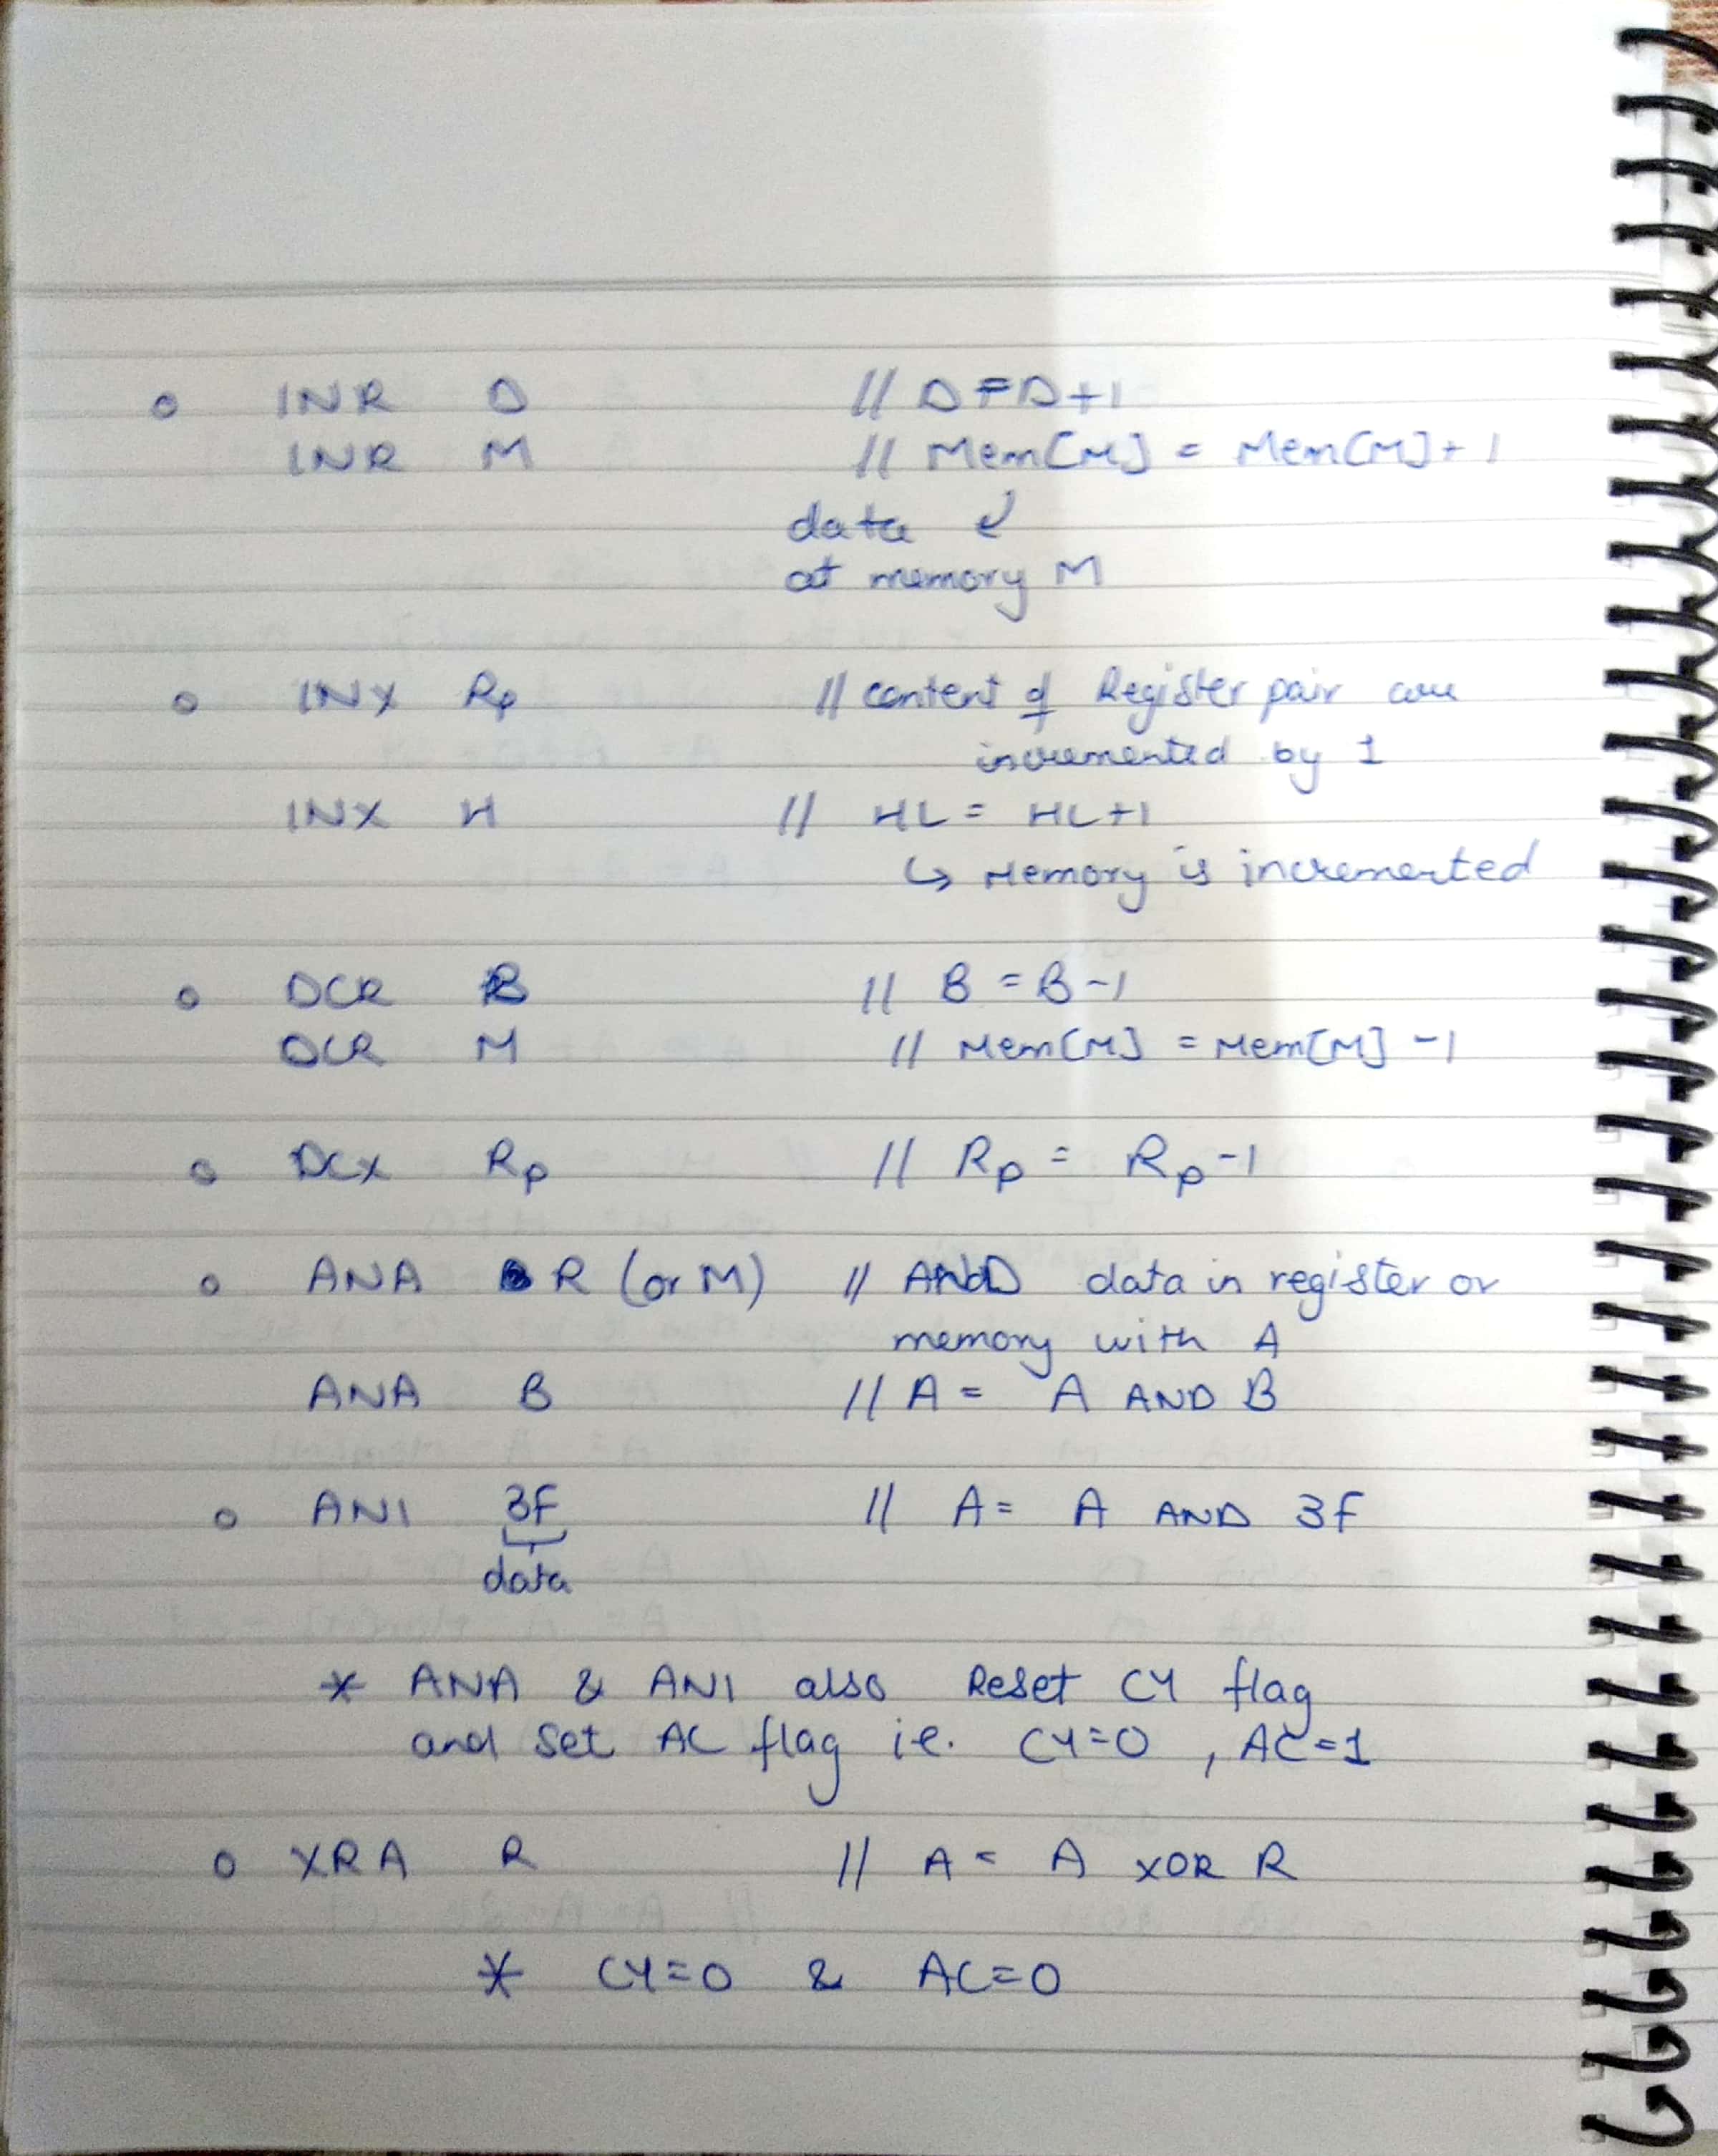 o INR D // D=D+1
INR M // Mem[M] = Mem[M]+1
data ↙
at memory M
o INX Rp // content of Register pair are
incremented by 1
INX H // HL = HL+1
↳ Memory is incremented
o DCR B // B = B-1
DCR M // Mem[M] = Mem[M] -1
o DCX Rp // Rp = Rp-1
o ANA R (or M) // AND data in register or
memory with A
ANA B // A = A AND B
o ANI 3F // A = A AND 3F
data
* ANA & ANI also Reset CY flag
and Set AC flag i.e. CY=0 , AC=1
o XRA R // A = A XOR R
* CY=0 & AC=0